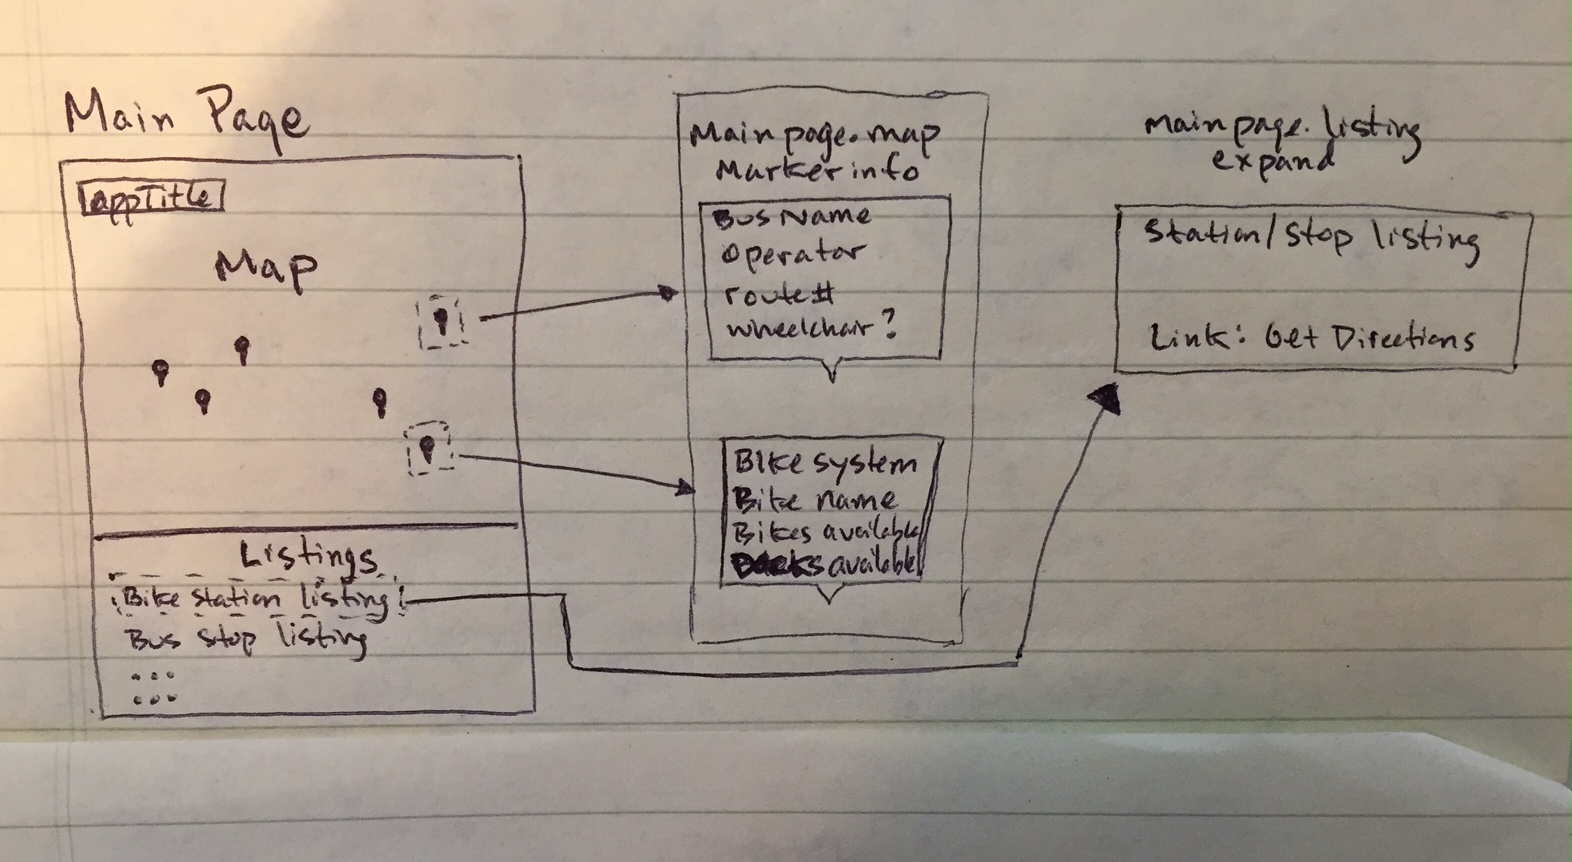 Main Page
appTitle
Map
Listings
Bike station listing
Bus stop listing
Mainpage.map
Marker info
Bus Name
operator
route#
wheelchair?
Bike system
Bike name
Bikes available
Docks available
mainpage.listing
expand
Station/Stop listing
Link: Get Directions